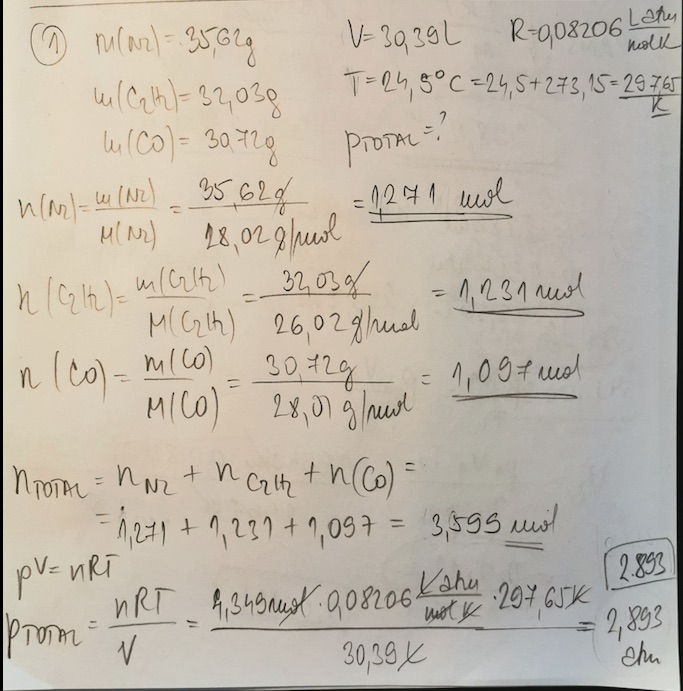 ① m(N2) = 35,62g V = 30,39 L R = 0,08206 L atm / mol K
m(C2H2) = 32,03g T = 24,5°C = 24,5 + 273,15 = 297,65 K
m(CO) = 30,72g pTOTAL = ?
n(N2) = m(N2) / M(N2) = 35,62g / 28,02 g/mol = 1,271 mol
n(C2H2) = m(C2H2) / M(C2H2) = 32,03g / 26,02 g/mol = 1,231 mol
n(CO) = m(CO) / M(CO) = 30,72g / 28,01 g/mol = 1,097 mol
nTOTAL = nN2 + nC2H2 + n(CO) =
= 1,271 + 1,231 + 1,097 = 3,599 mol
pV = nRT
2.893
pTOTAL = nRT / V = 4,349 mol · 0,08206 L atm / mol K · 297,65 K / 30,39 L = 2,893 atm